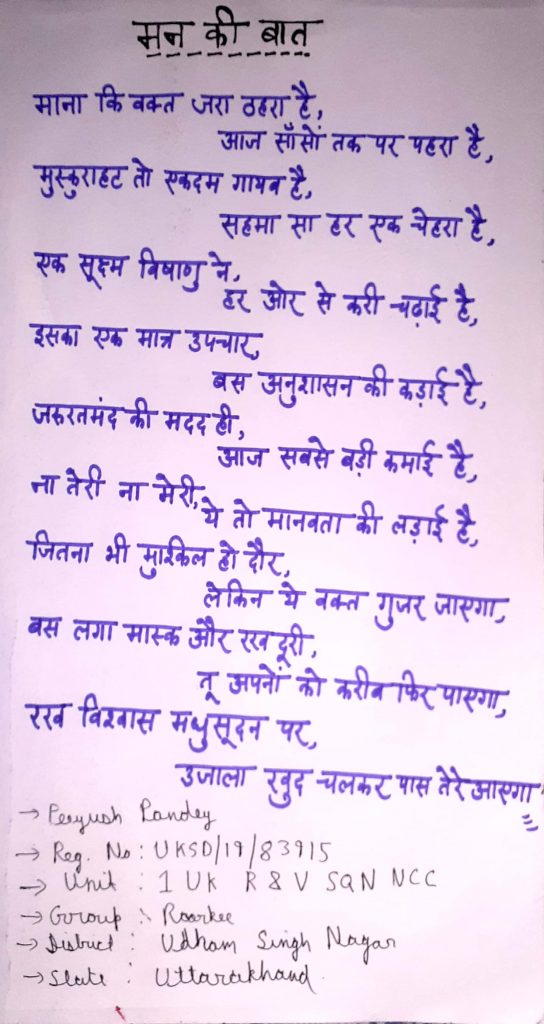 मन की बात
माना कि वक्त जरा ठहरा है,
आज साँसों तक पर पहरा है,
मुस्कुराहट तो एकदम गायब है,
सहमा सा हर एक चेहरा है,
एक सूक्ष्म विषाणु ने,
हर ओर से करी चढ़ाई है,
इसका एक मात्र उपचार,
बस अनुशासन की कड़ाई है,
जरुरतमंद की मदद ही,
आज सबसे बड़ी कमाई है,
ना तेरी ना मेरी,
ये तो मानवता की लड़ाई है,
जितना भी मुश्किल हो दौर,
लेकिन ये वक्त गुजर जाएगा,
बस लगा मास्क और रख दूरी,
तू अपनों को करीब फिर पाएगा,
रख विश्वास मधुसूदन पर,
उजाला खुद चलकर पास तेरे आएगा
→ Peeyush Pandey
→ Reg. No : UKSD/19/83915
→ Unit : 1 UK R & V SQN NCC
→ Group : Roorkee
→ District : Udham Singh Nagar
→ State : Uttarakhand.